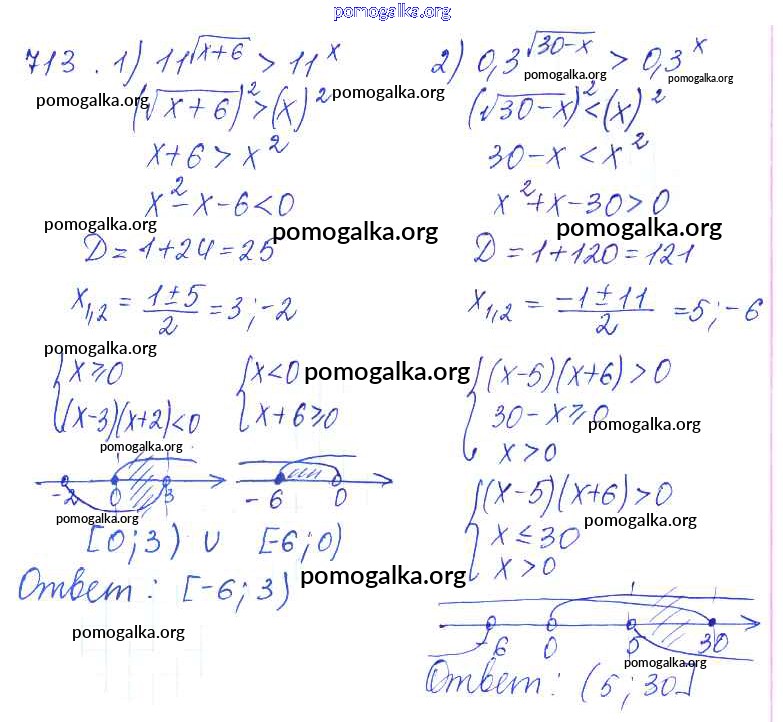 pomogalka.org
713. 1) 11^√(x+6) > 11^x
pomogalka.org
pomogalka.org
(√(x+6))² > (x)²
x+6 > x²
x²-x-6<0
pomogalka.org
pomogalka.org
D=1+24=25
x₁,₂ = (1±5)/2 = 3;-2
pomogalka.org
{x≥0
(x-3)(x+2)<0
{x<0
x+6≥0
pomogalka.org
pomogalka.org
-2 0 3
-6 0
pomogalka.org
[0;3) ∪ [-6;0)
Ответ: [-6;3)
pomogalka.org
pomogalka.org
2) 0,3^√(30-x) > 0,3^x
pomogalka.org
pomogalka.org
(√(30-x))² < (x)²
30-x < x²
x²+x-30>0
pomogalka.org
D=1+120=121
x₁,₂ = (-1±11)/2 = 5;-6
{(x-5)(x+6)>0
30-x≥0
pomogalka.org
x>0
{(x-5)(x+6)>0
x≤30
pomogalka.org
x>0
-6 0 5 30
pomogalka.org
Ответ: (5;30]